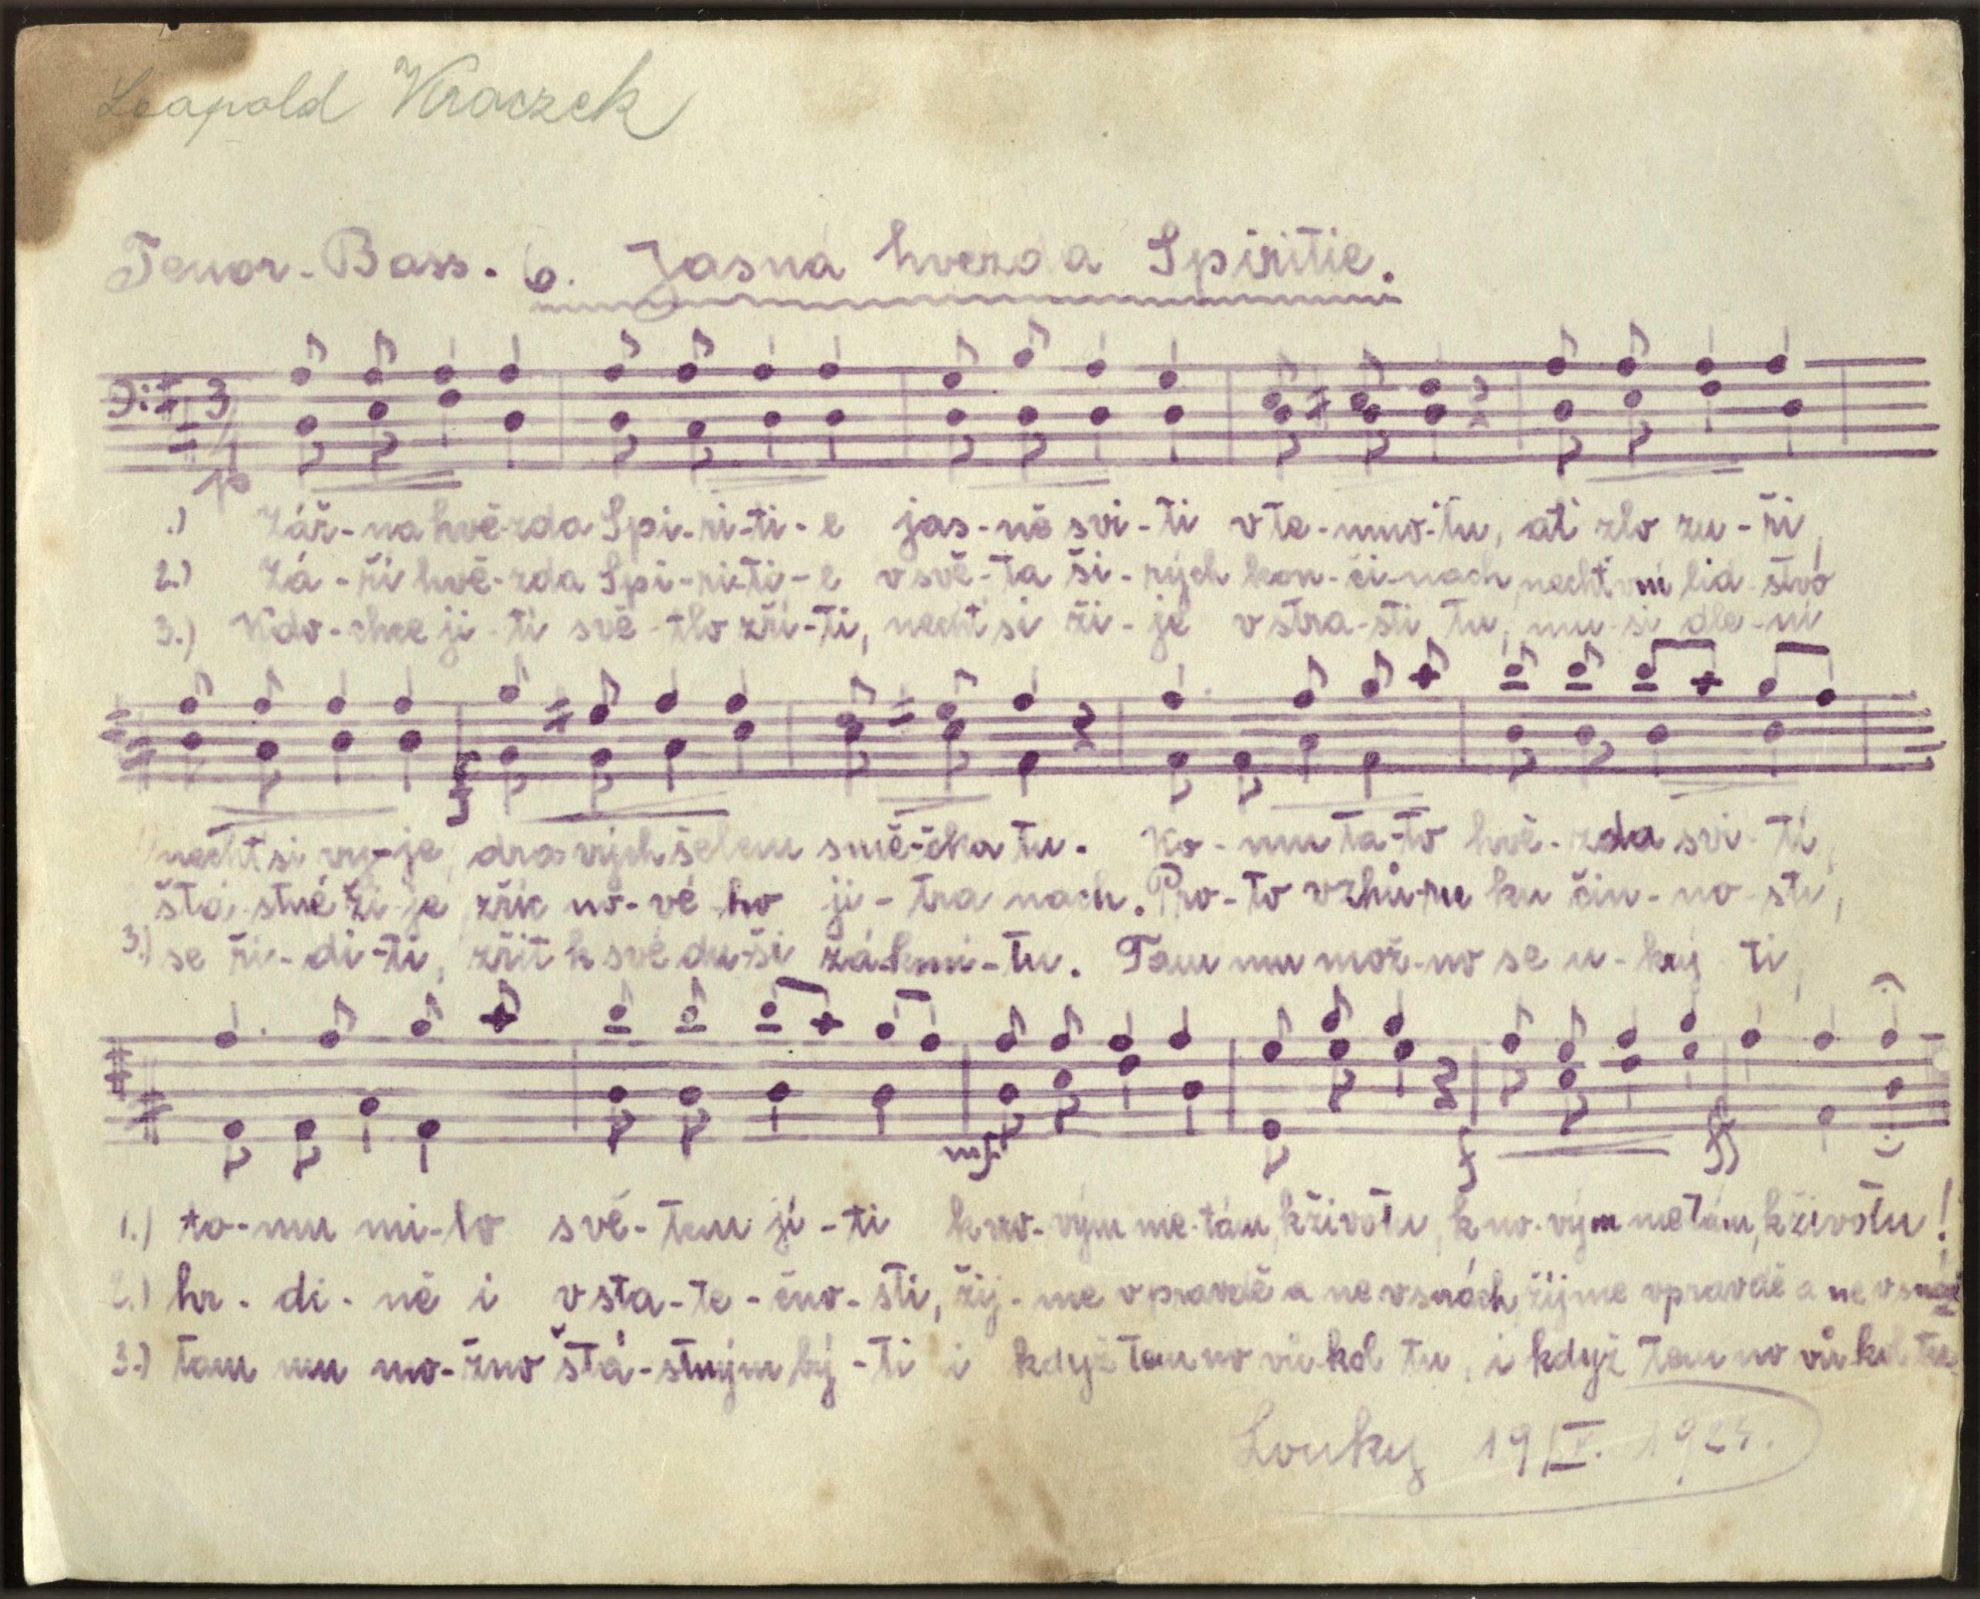 Leopold Kraczek
Tenor-Bass. 6. Jasná hvezda Spiritie.
3
4
p
1.) Zář-na hvě-zda Spi-ri-ti-e jas-ně sví-tí v te-mno-tu, ať zlo zu-ří,
2.) Zá-ři hvě-zda Spi-ri-ti-e v svě-ta ši-rých kon-či-nach, necht lid-stvo
3.) Kdo-chce ji-ti svě-tlo zří-ti, necht si ži-je v stra-sti tu, mu-si dle-ní
f
necht si vy-je, dravých šelem smě-čka tu. Ko-mu ta-to hvě-zda sví-tí,
šťa-stné ži-je zříc no-vé-ho ji-tra nach. Pro-to vzhů-ru ku čin-no-sti,
3.) se ří-di-ti, zřít k své du-ši zá-kmi-tu. Tam mu mož-no se u-krý-ti,
mf f ff
1.) to-mu mi-lo svě-tem jí-ti k no-vým me-tám, k životu, k no-vým metám, k životu!
2.) hr-di-ně i v sta-te-čno-sti, žij-me v pravdě a ne v snách, žijme v pravdě a ne v snách
3.) tam mu mo-žno šťá-stným bý-ti i když tam no vů-kol tu, i když tam no vů kol tu.
Louky 1924.